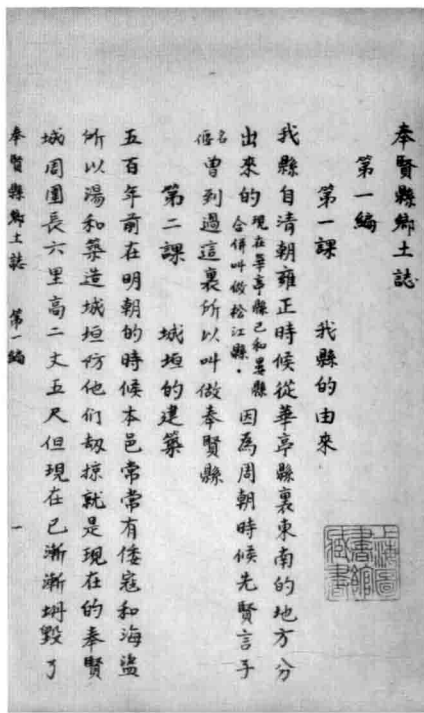 奉賢縣鄉土誌
第一編
第一課 我縣的由來
我縣自清朝雍正時候從華亭縣裏東南的地方分
出來的現在華亭縣已和婁縣合併叫做松江縣．因為周朝時候先賢言子
名偃曾到過這裏所以叫做奉賢縣
第二課 城垣的建築
五百年前在明朝的時候本邑常常有倭寇和海盜
所以湯和築造城垣防他們刼掠就是現在的奉賢
城周圍長六里高二丈五尺但現在已漸漸坍毀了
奉賢縣鄉土誌 第一編 一
上海圖書館藏書